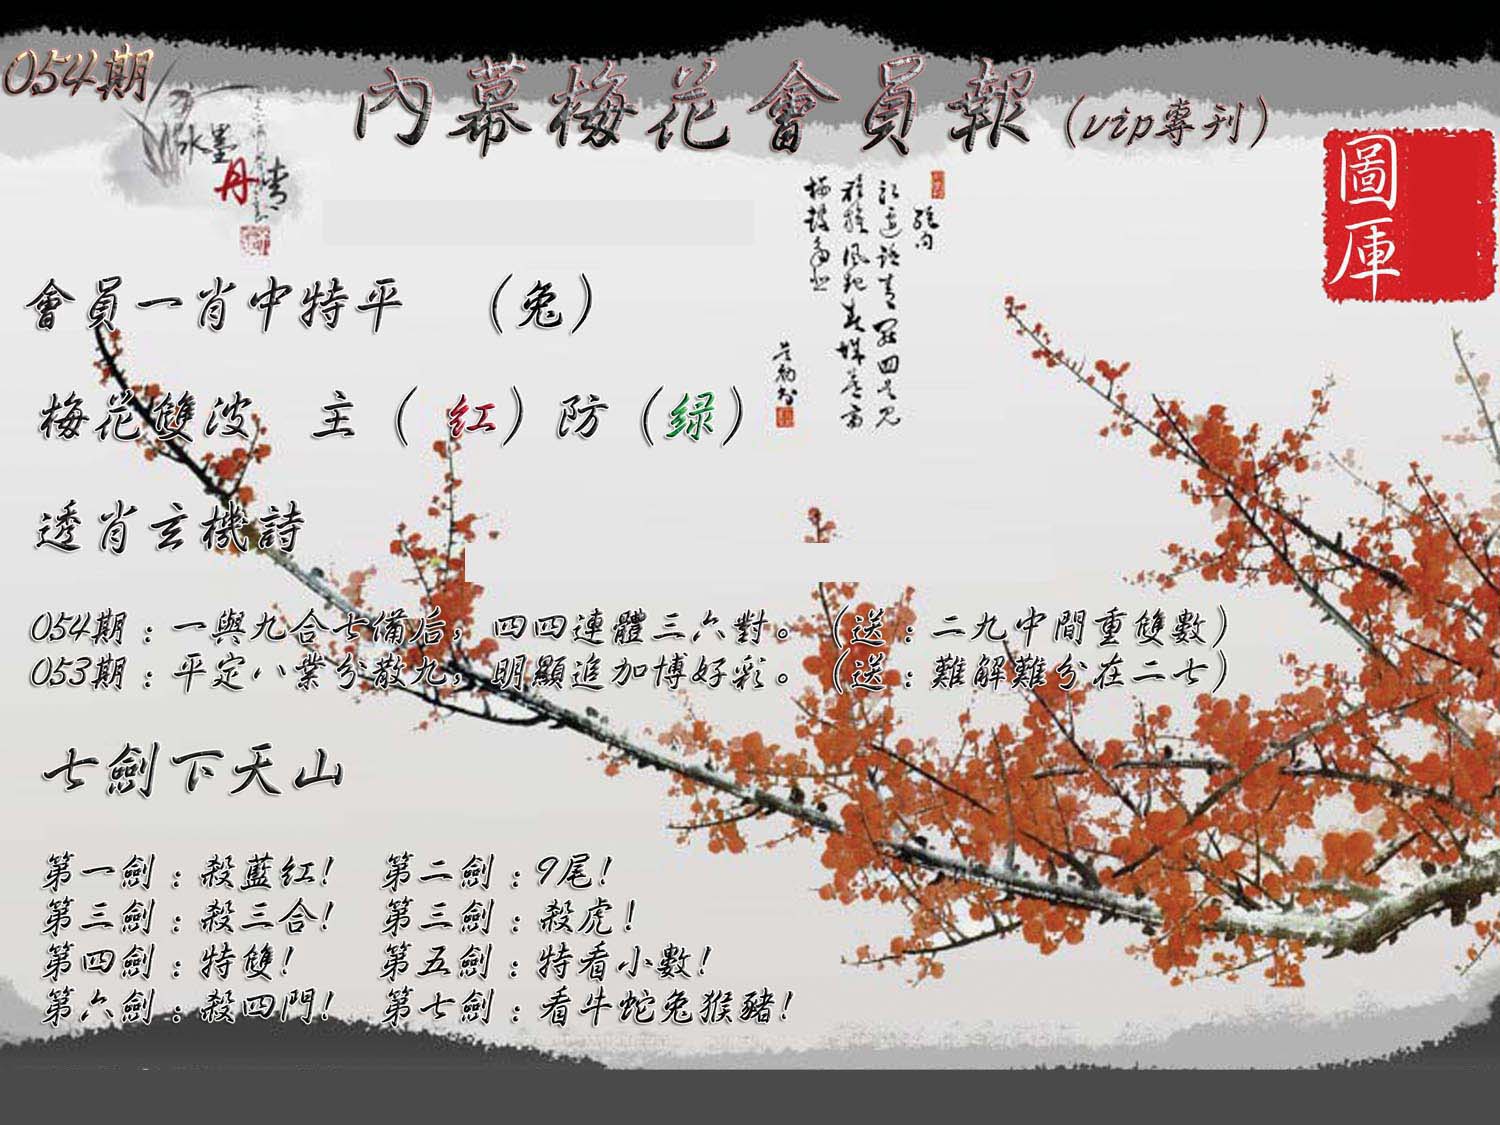 054期
內幕梅花會員報(vip專刊)
水墨
丹青
圖庫
會員一肖中特平 (兔)
梅花雙波 主(紅)防(绿)
透肖玄機詩
054期:一與九合七備后,四四連體三六對。(送:二九中間重雙數)
053期:平定八業分散九,明顯追加博好彩。(送:難解難分在二七)
七劍下天山
第一劍:殺藍红! 第二劍:9尾!
第三劍:殺三合! 第三劍:殺虎!
第四劍:特雙! 第五劍:特看小數!
第六劍:殺四門! 第七劍:看牛蛇兔猴豬!